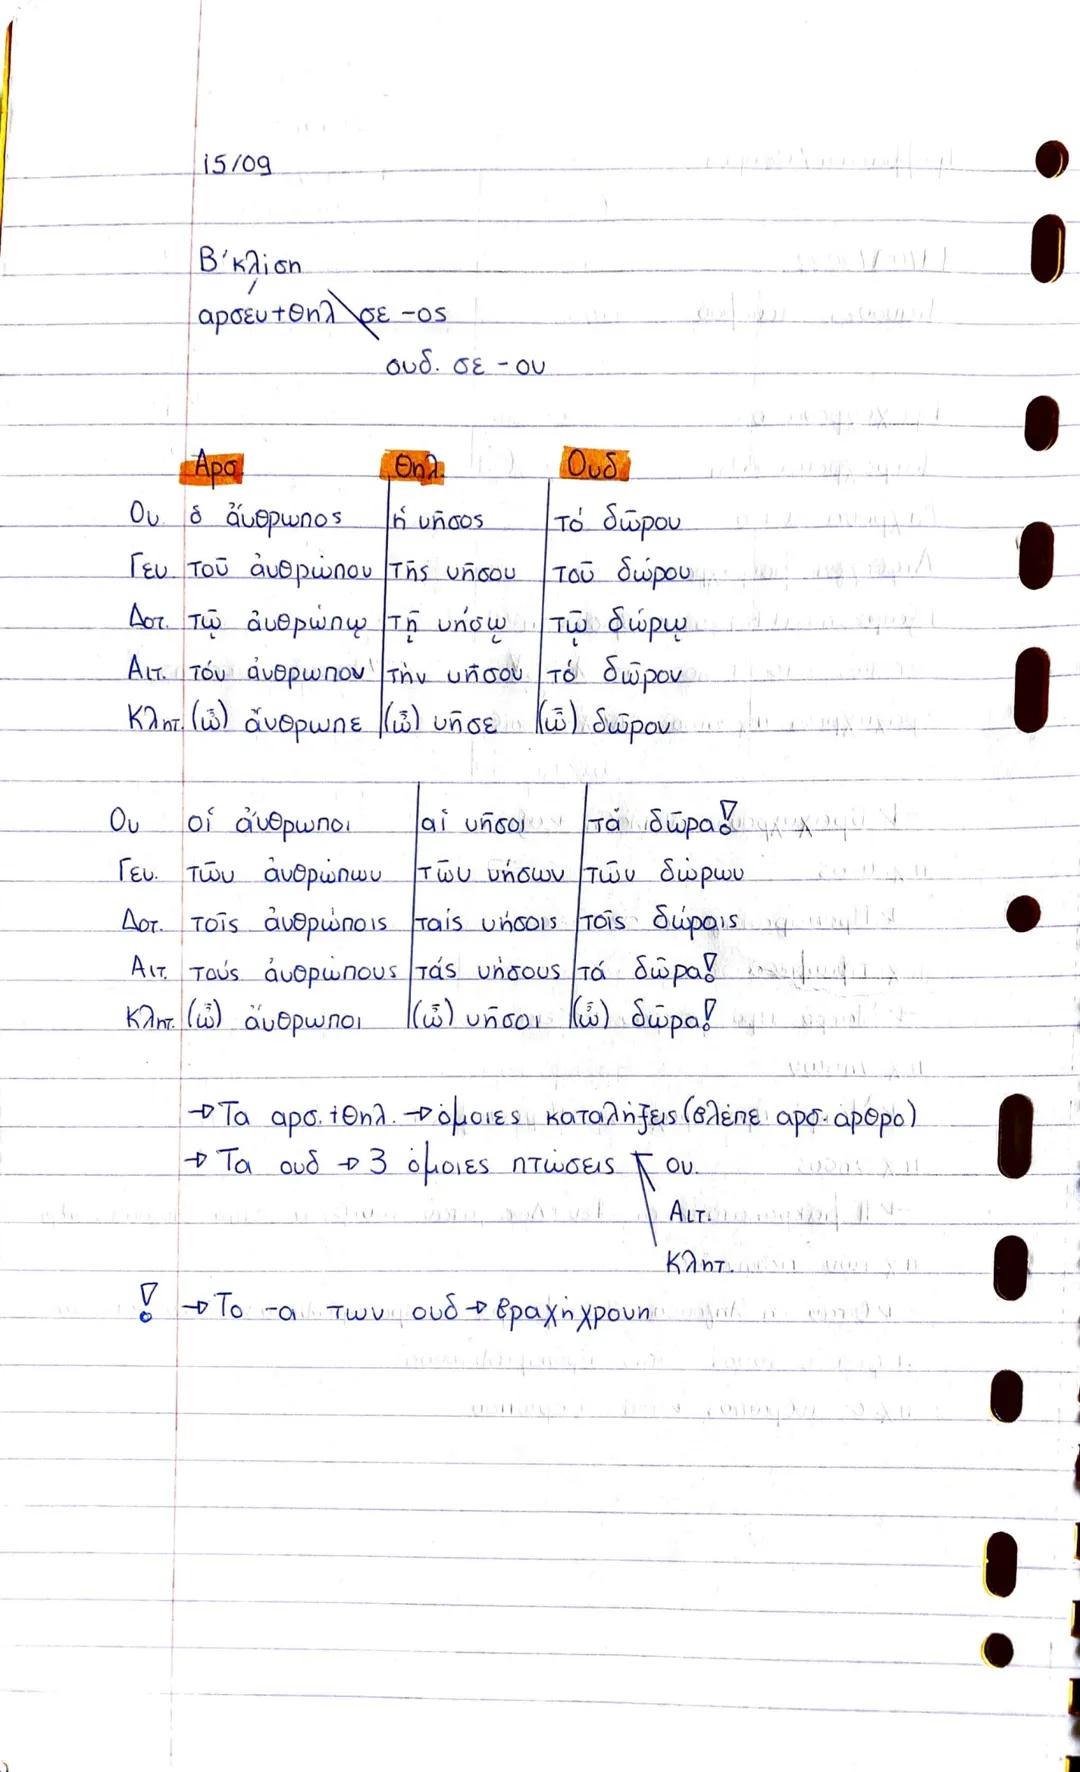 15/09
Β' κλίση
αρσεν+θηλ σε -ος
ουδ. σε -ον
Αρσ. Θηλ. Ουδ
Ον ὁ ἄνθρωπος ἡ νῆσος τό δῶρον
Γεν. τοῦ ἀνθρώπου τῆς νῆσου τοῦ δώρου
Δοτ. τῷ ἀνθρώπῳ τῇ νήσῳ τῷ δώρῳ
Αιτ. τόν ἄνθρωπον τὴν νῆσον τό δῶρον
Κλητ. (ὦ) ἄνθρωπε (ὦ) νῆσε (ὦ) δῶρον
Ον οἱ ἄνθρωποι αἱ νῆσοι τά δῶρα!
Γεν. τῶν ἀνθρώπων τῶν νήσων τῶν δώρων
Δοτ. τοῖς ἀνθρώποις ταῖς νήσοις τοῖς δώροις
Αιτ. τούς ἀνθρώπους τάς νήσους τά δῶρα!
Κλητ. (ὦ) ἄνθρωποι (ὦ) νῆσοι (ὦ) δῶρα!
→ Τα αρσ. +θηλ. → όμοιες καταλήξεις (βλέπε αρσ. άρθρο)
→ Τα ουδ → 3 όμοιες πτώσεις ον.
Αιτ.
Κλητ.
! → Το -α των ουδ → βραχήχρονη